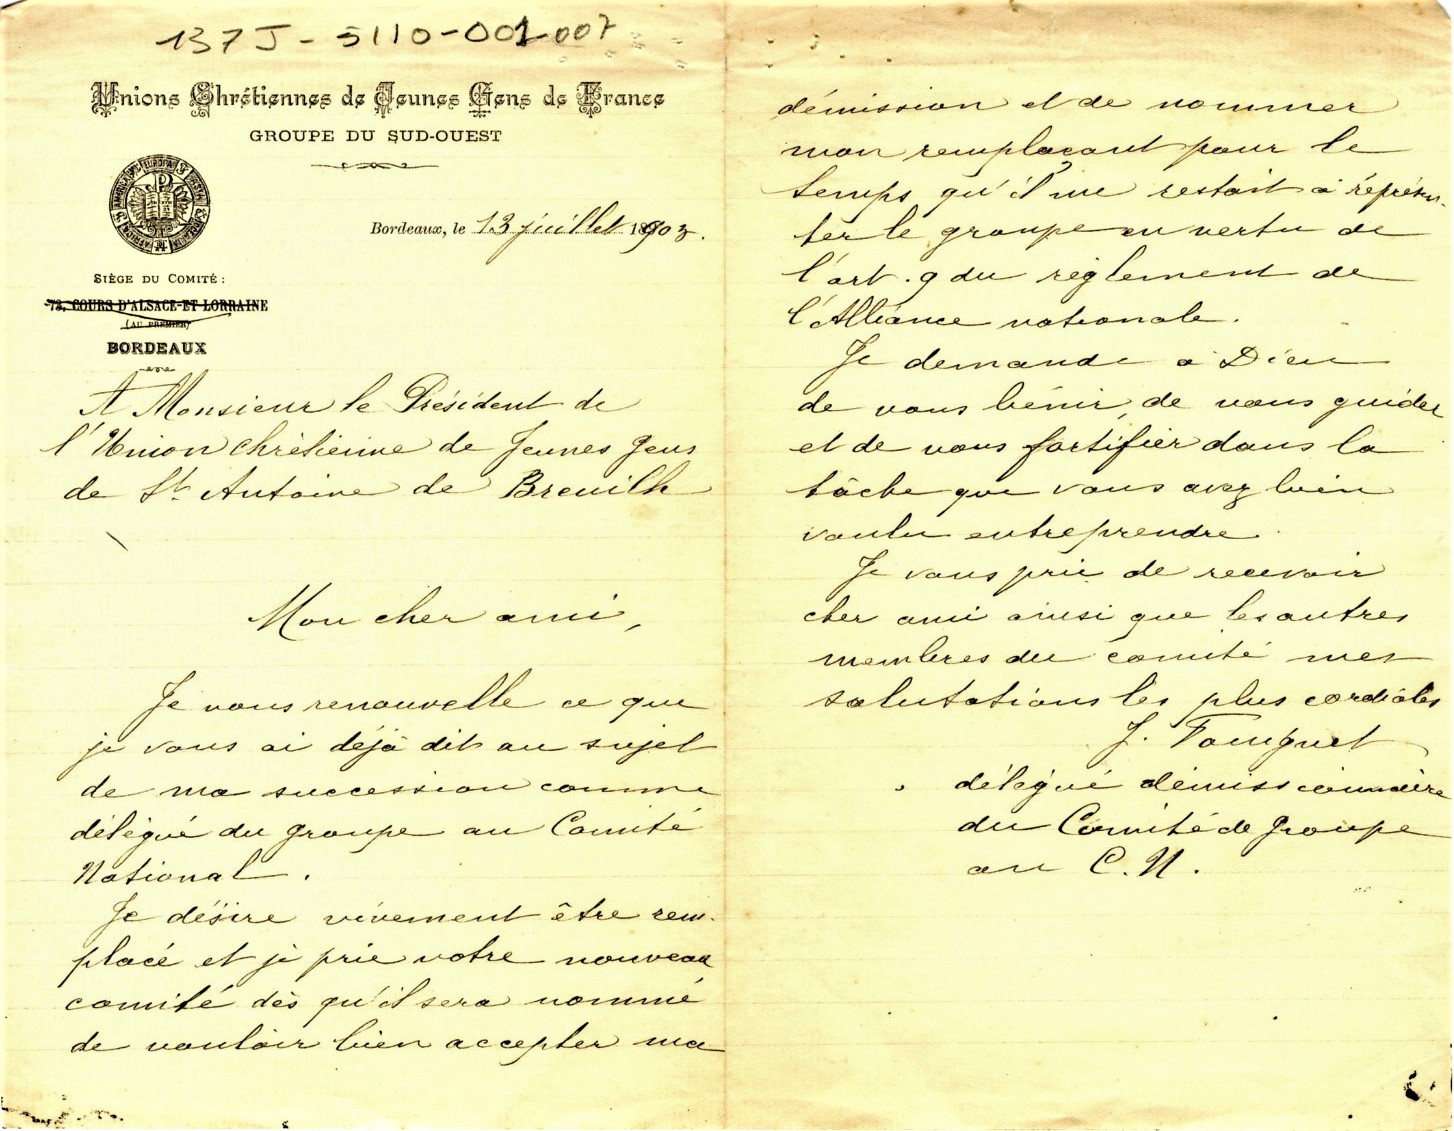 137 J - 5110-001-007
Unions Chrétiennes de Jeunes Gens de France
GROUPE DU SUD-OUEST
Bordeaux, le 13 juillet 1903.
SIÈGE DU COMITÉ :
72, COURS D'ALSACE-ET-LORRAINE
(AU PREMIER)
BORDEAUX
A Monsieur le Président de
l'Union chrétienne de Jeunes Gens
de St Antoine de Breuilh
Mon cher ami,
Je vous renouvelle ce que
je vous ai déjà dit au sujet
de ma succession comme
délégué du groupe au Comité
National.
Je désire vivement être rem-
placé et je prie votre nouveau
comité dès qu'il sera nommé
de vouloir bien accepter ma
démission et de nommer
mon remplaçant pour le
temps qu'il me restait à représen-
ter le groupe en vertu de
l'art. 9 du règlement de
l'Alliance nationale.
Je demande à Dieu
de vous bénir, de vous guider
et de vous fortifier dans la
tâche que vous avez bien
voulu entreprendre.
Je vous prie de recevoir
cher ami ainsi que les autres
membres du comité mes
salutations les plus cordiales
J. Fouquet
délégué démissionnaire
du Comité de Groupe
au C. N.